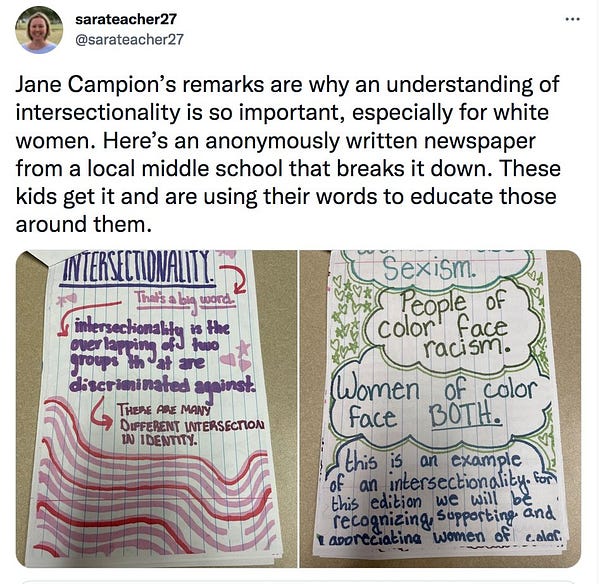 sarateacher27
@sarateacher27
Jane Campion's remarks are why an understanding of
intersectionality is so important, especially for white
women. Here's an anonymously written newspaper
from a local middle school that breaks it down. These
kids get it and are using their words to educate those
around them.
INTERSECTIONALITY.
That's a big word.
intersectionality is the
overlapping of two
groups that are
discriminated against.
THERE ARE MANY
DIFFERENT INTERSECTION
IN IDENTITY.
Sexism.
People of
color face
racism.
Women of color
face BOTH.
this is an example
of an intersectionality. for
this edition we will be
recognizing, supporting and
appreciating women of color.